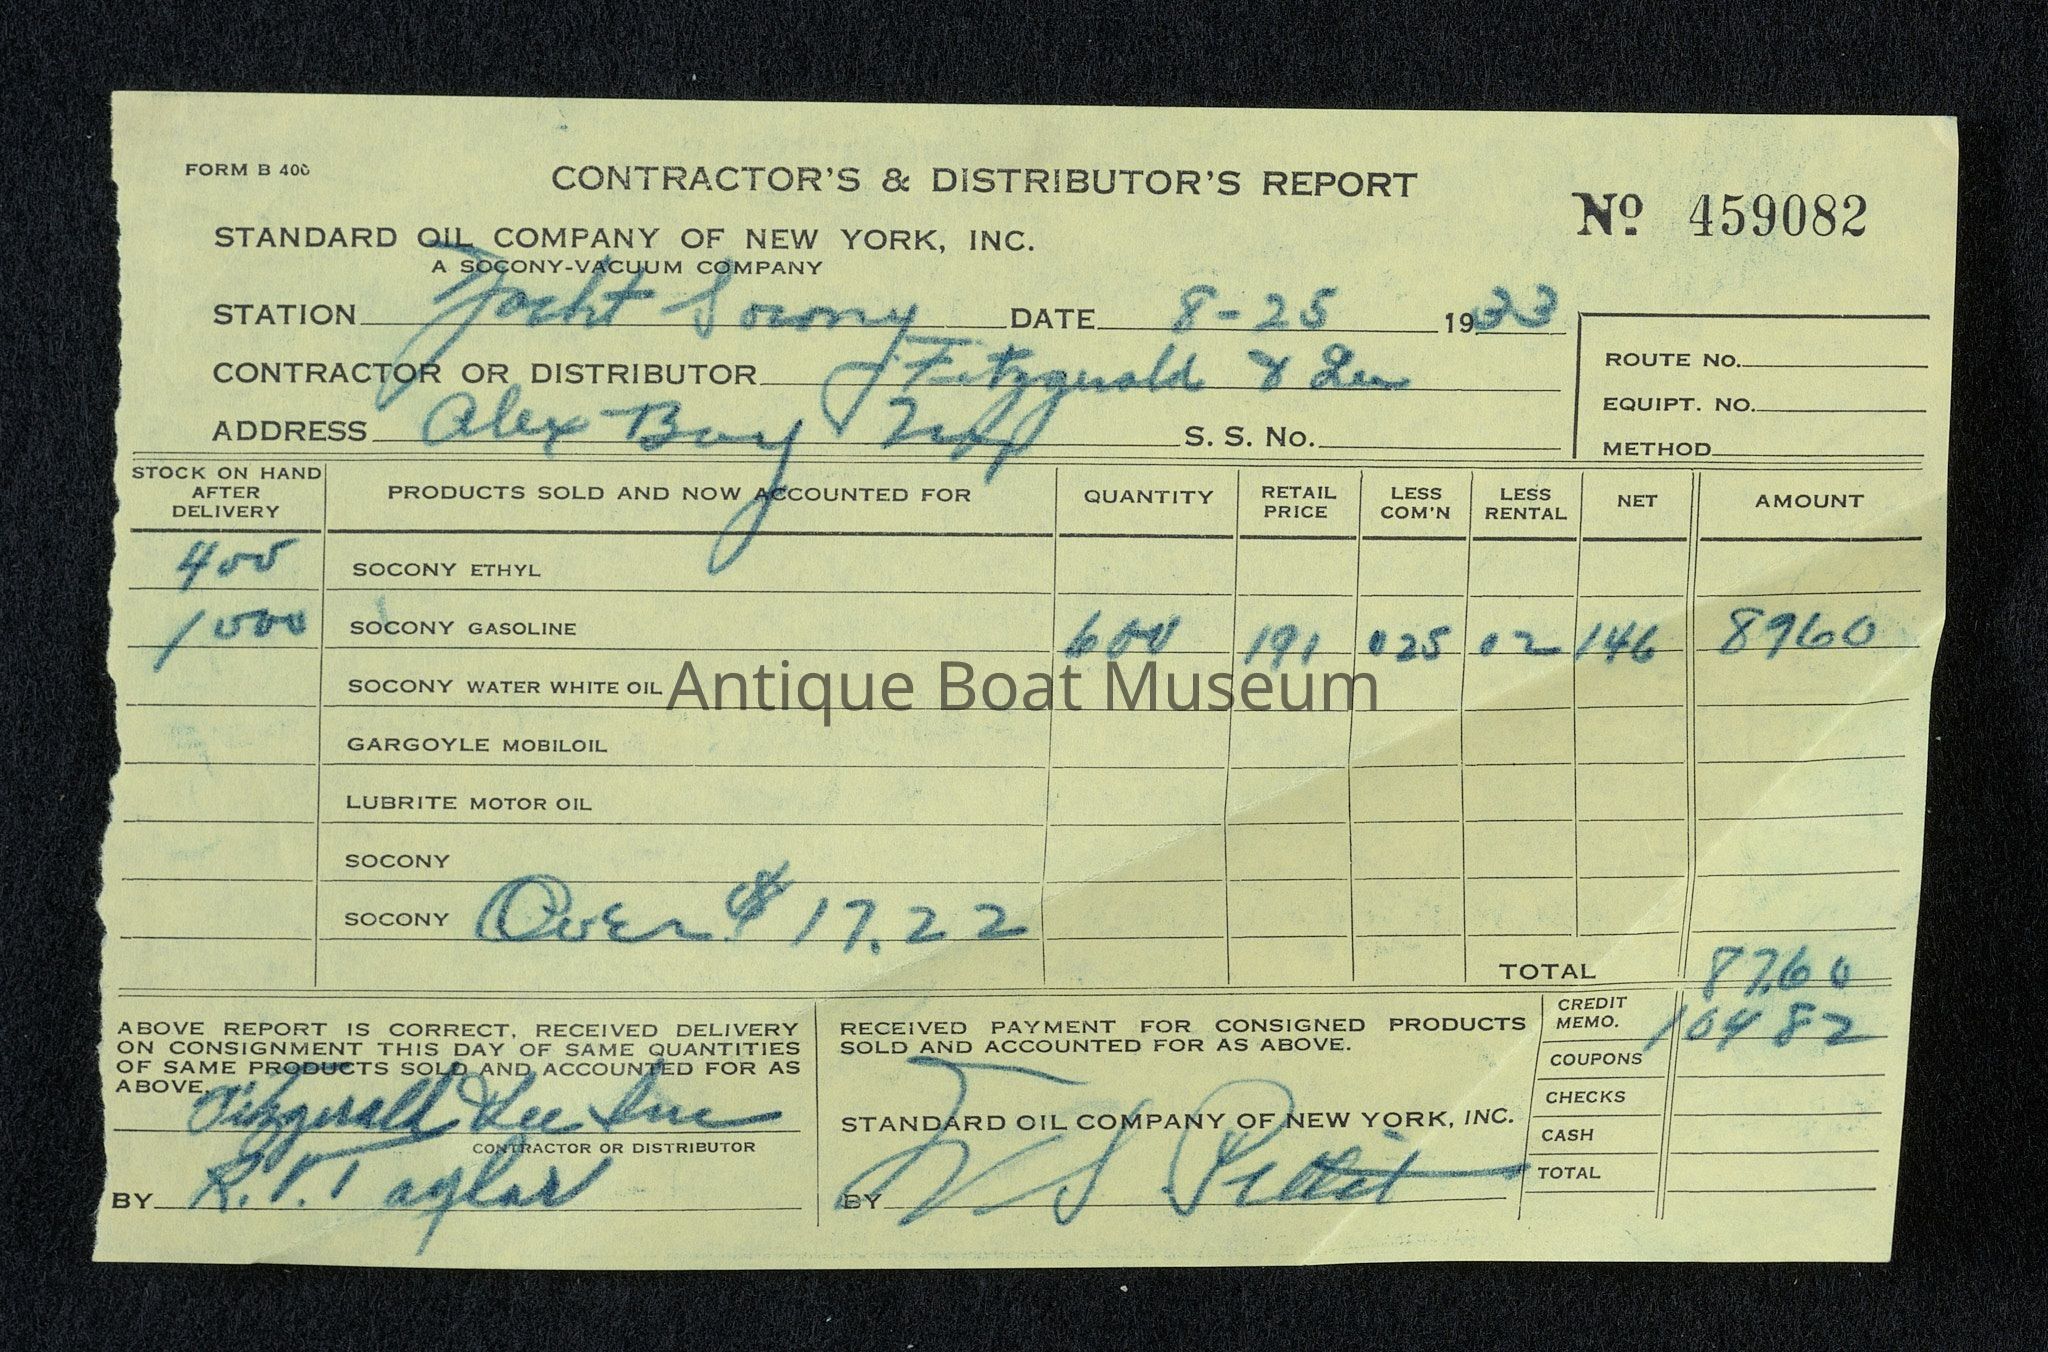 FORM B 400
CONTRACTOR'S & DISTRIBUTOR'S REPORT
Nº 459082
STANDARD OIL COMPANY OF NEW YORK, INC.
A SOCONY-VACUUM COMPANY
STATION Yacht Socony DATE 8-25 1933
CONTRACTOR OR DISTRIBUTOR Fitzgerald & Lee
ADDRESS Alex Bay N.Y. S. S. No.
ROUTE No.
EQUIPT. NO.
METHOD
STOCK ON HAND AFTER DELIVERY PRODUCTS SOLD AND NOW ACCOUNTED FOR QUANTITY RETAIL PRICE LESS COM'N LESS RENTAL NET AMOUNT
400 SOCONY ETHYL
1000 SOCONY GASOLINE 600 191 025 02 146 8960
SOCONY WATER WHITE OIL
Antique Boat Museum
GARGOYLE MOBILOIL
LUBRITE MOTOR OIL
SOCONY
SOCONY Over $17.22
TOTAL 87.60
CREDIT MEMO. 104 82
COUPONS
CHECKS
CASH
TOTAL
ABOVE REPORT IS CORRECT, RECEIVED DELIVERY
ON CONSIGNMENT THIS DAY OF SAME QUANTITIES
OF SAME PRODUCTS SOLD AND ACCOUNTED FOR AS
ABOVE.
Fitzgerald & Lee Inc
CONTRACTOR OR DISTRIBUTOR
BY R.V. Taylor
RECEIVED PAYMENT FOR CONSIGNED PRODUCTS
SOLD AND ACCOUNTED FOR AS ABOVE.
STANDARD OIL COMPANY OF NEW YORK, INC.
BY